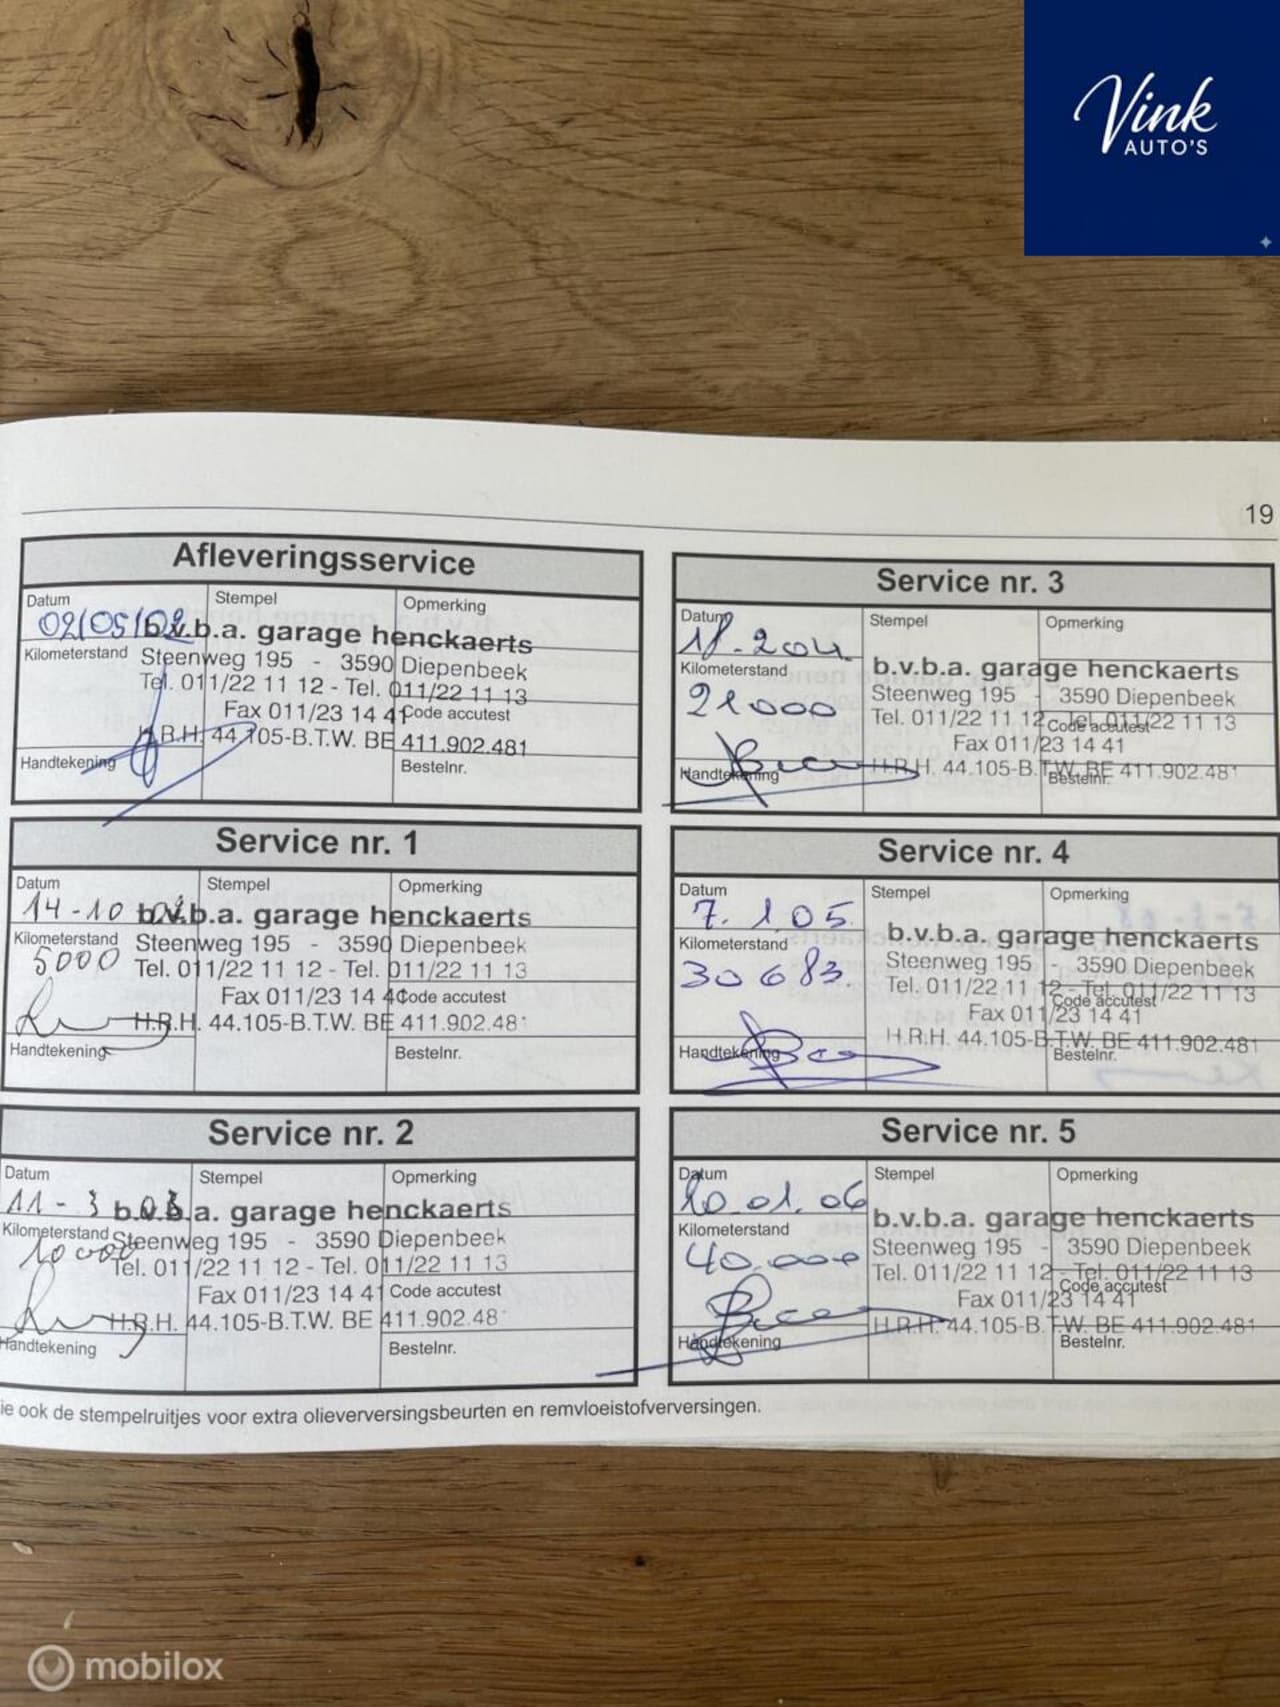 Vink
AUTO'S
19
Afleveringsservice
Datum Stempel Opmerking
02/05/02 b.v.b.a. garage henckaerts
Kilometerstand Steenweg 195 - 3590 Diepenbeek
Tel. 011/22 11 12 - Tel. 011/22 11 13
Fax 011/23 14 41 Code accutest
H.R.H. 44.105-B.T.W. BE 411.902.481
Handtekening Bestelnr.
Service nr. 1
Datum Stempel Opmerking
14-10 02 b.v.b.a. garage henckaerts
Kilometerstand Steenweg 195 - 3590 Diepenbeek
5000 Tel. 011/22 11 12 - Tel. 011/22 11 13
Fax 011/23 14 4 Code accutest
H.R.H. 44.105-B.T.W. BE 411.902.48
Handtekening Bestelnr.
Service nr. 2
Datum Stempel Opmerking
11-3 03 b.v.b.a. garage henckaerts
Kilometerstand Steenweg 195 - 3590 Diepenbeek
10000 Tel. 011/22 11 12 - Tel. 011/22 11 13
Fax 011/23 14 41 Code accutest
H.R.H. 44.105-B.T.W. BE 411.902.48
Handtekening Bestelnr.
Service nr. 3
Datum Stempel Opmerking
b.v.b.a. garage henckaerts
Kilometerstand Steenweg 195 - 3590 Diepenbeek
21000 Tel. 011/22 11 12 - Tel. 011/22 11 13
Code accutest
Fax 011/23 14 41
H.R.H. 44.105-B.T.W. BE 411.902.481
Handtekening Bestelnr.
Service nr. 4
Datum Stempel Opmerking
7.1.05. b.v.b.a. garage henckaerts
Kilometerstand Steenweg 195 - 3590 Diepenbeek
30683. Tel. 011/22 11 12 - Tel. 011/22 11 13
Code accutest
Fax 011/23 14 41
H.R.H. 44.105-B.T.W. BE 411.902.481
Handtekening Bestelnr.
Service nr. 5
Datum Stempel Opmerking
10.01.06 b.v.b.a. garage henckaerts
Kilometerstand Steenweg 195 - 3590 Diepenbeek
40.000 Tel. 011/22 11 12 - Tel. 011/22 11 13
Code accutest
Fax 011/23 14 41
H.R.H. 44.105-B.T.W. BE 411.902.481
Handtekening Bestelnr.
ie ook de stempelruitjes voor extra olieverversingsbeurten en remvloeistofverversingen.
mobilox